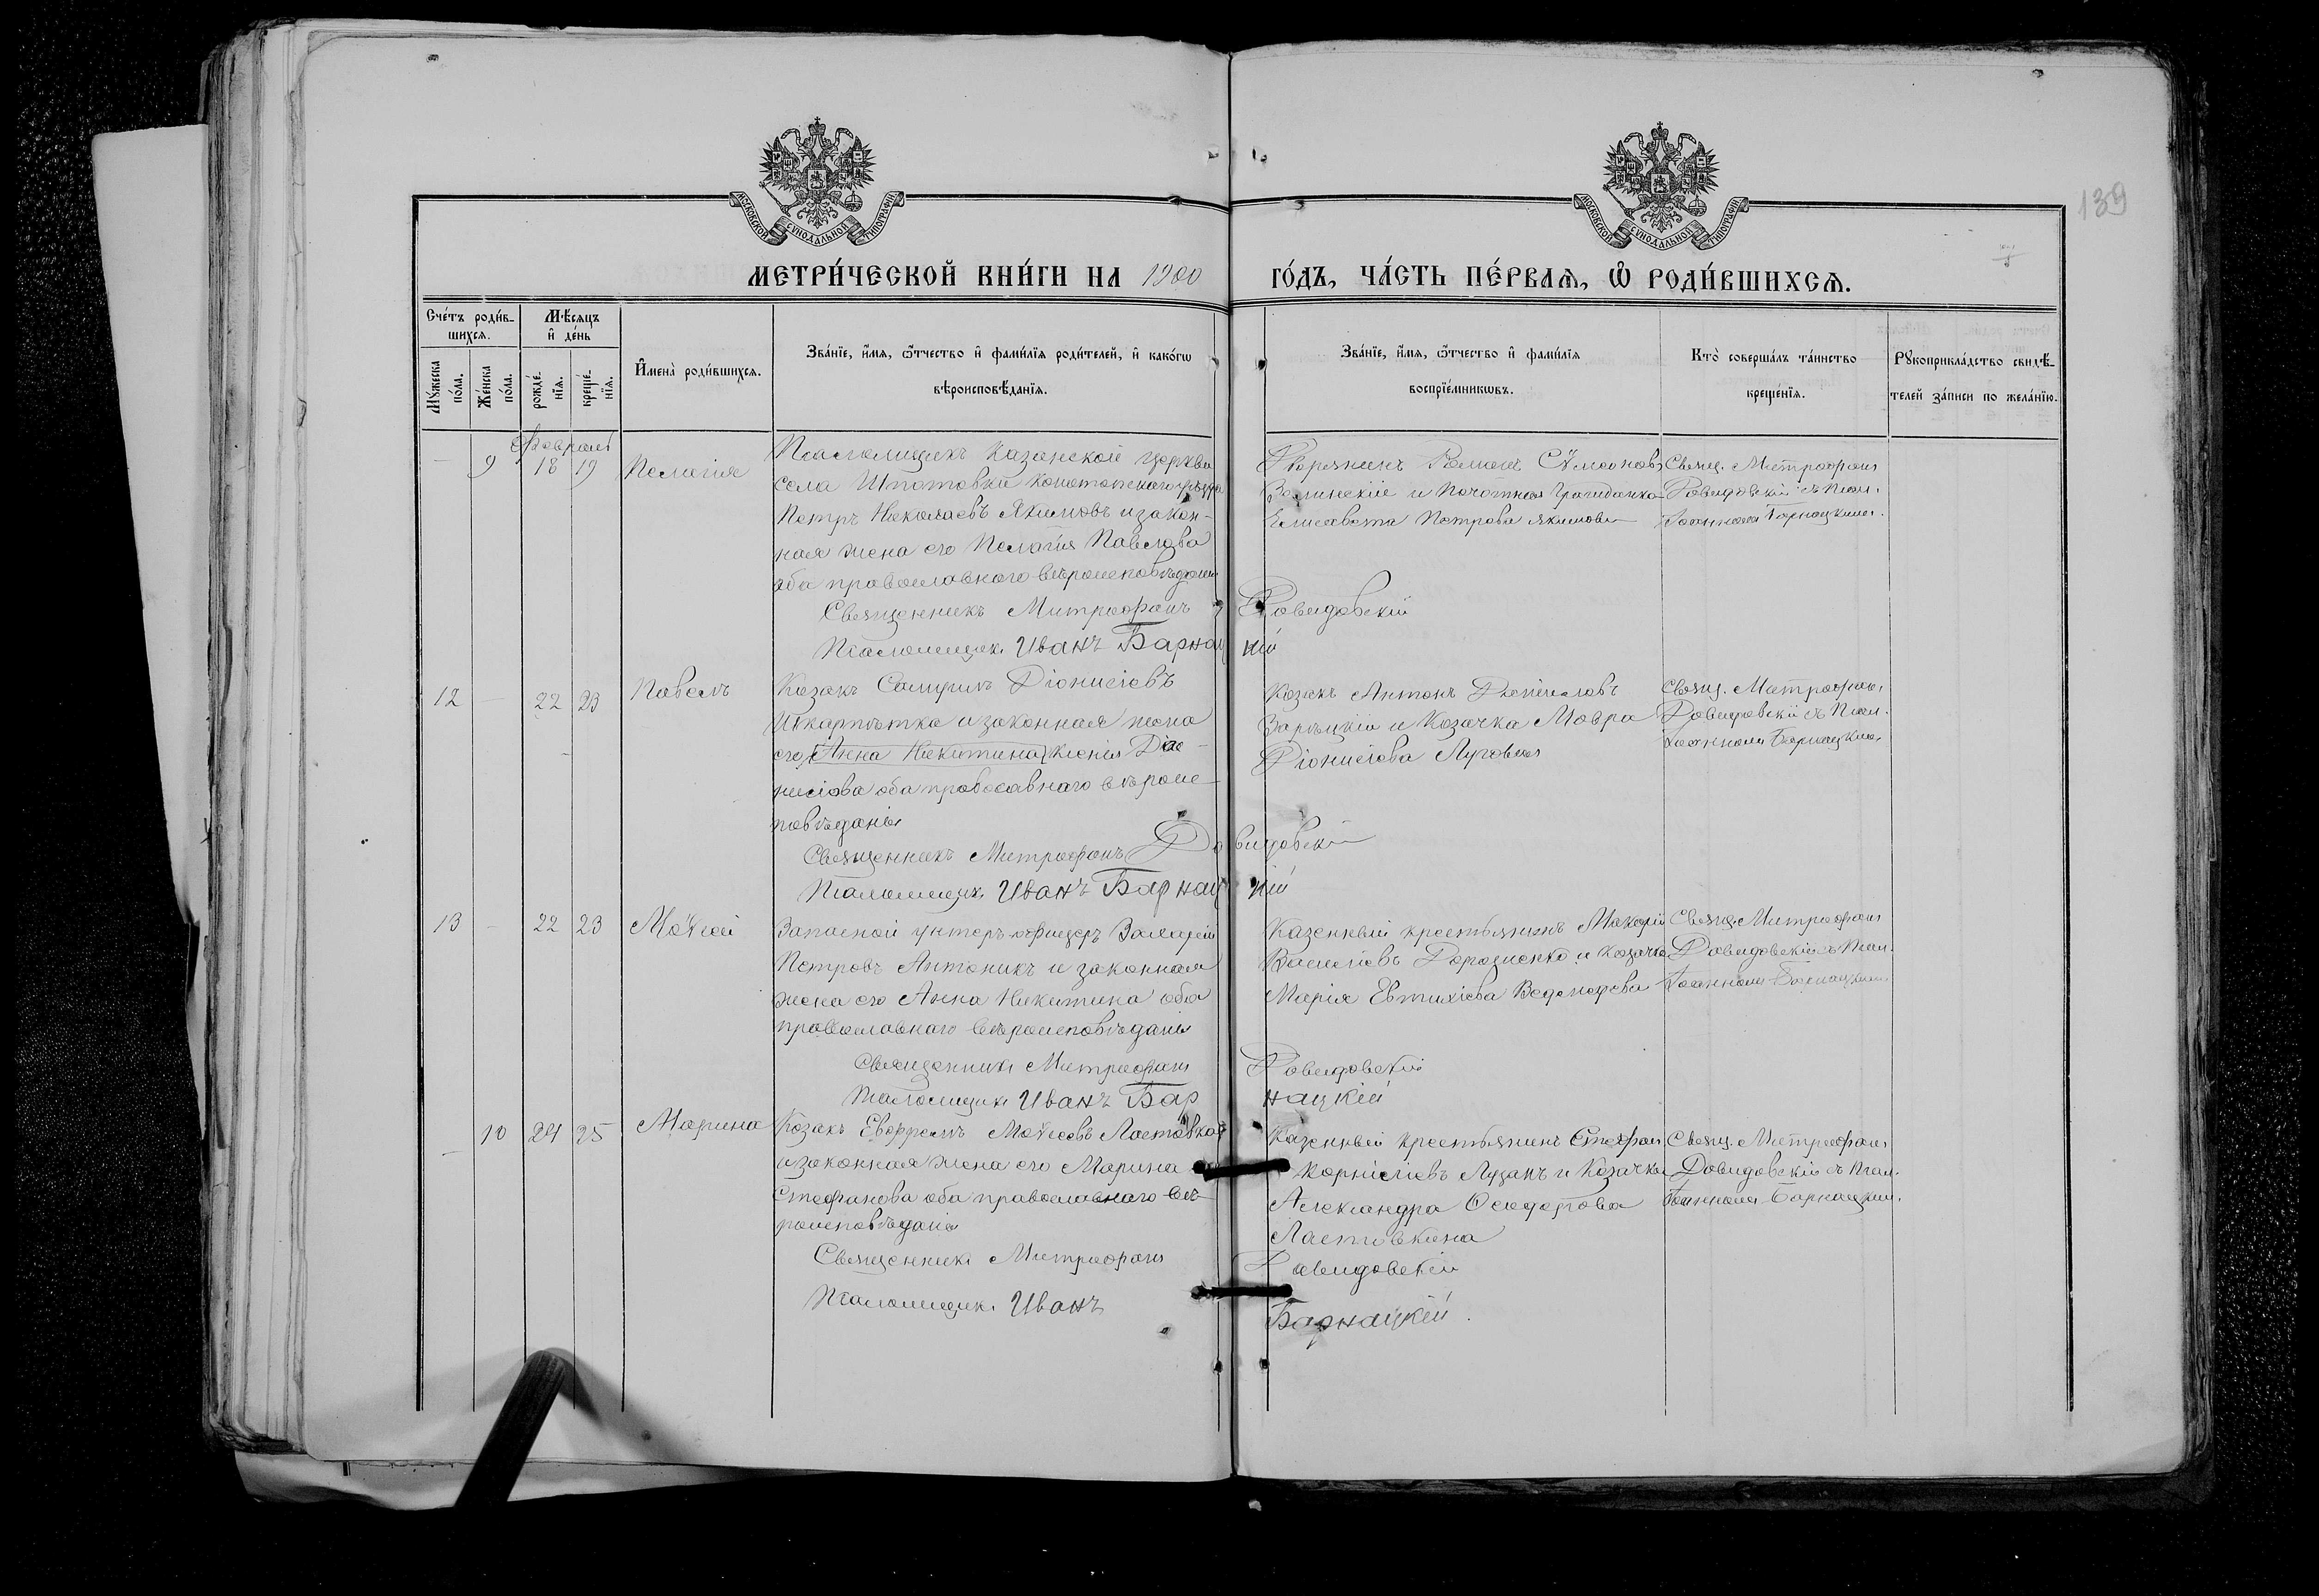 139
МОСКОВСКОЙ СѴНОДАЛЬНОЙ ТИПОГРАФІИ
МОСКОВСКОЙ СѴНОДАЛЬНОЙ ТИПОГРАФІИ
МЕТРИ́ЧЕСКОЙ КНИ́ГИ НА 1900 ГО́ДЪ, ЧА́СТЬ ПЕ́РВАѦ, Ѽ РОДИ́ВШИХСѦ.
Сче́тъ роди́в-
шихсѧ.
Мꙋ́жеска
по́ла.
Же́нска
по́ла.
Мѣ́сѧцъ
и҆ де́нь
рожде́-
нїѧ.
креще́-
нїѧ.
И҆мена̀ роди́вшихсѧ.
Зва́нїе, и҆́мѧ, ѻ҆́тчество и҆ фами́лїѧ роди́телей, и҆ како́гѡ
вѣроисповѣ́данїѧ.
Зва́нїе, и҆́мѧ, ѻ҆́тчество и҆ фами́лїѧ
воспрїе́мникѡвъ.
Кто̀ соверша́лъ та́инство
креще́нїѧ.
Рꙋкоприкла́дство свидѣ́-
телей за́писи по жела́нїю.
Февраль
— 9 18 19 Пелагія
Псаломщикъ Казанской церкви
села Шпотовки Конотопскаго уѣзда
Петръ Николаевъ Якимовъ и закон-
ная жена его Пелагія Павлова
оба православного вѣроисповѣданія
Дворянинъ Романъ Сѵмеоновъ
Волинскій и Почотная Гражданка
Елисавета Петрова Якимова
Свящ. Митрофанъ
Давидовскій съ Псал.
Іоанномъ Барнацкимъ.
Священникъ Митрофанъ Давидовскій
Псаломщикъ Иванъ Барнацкій
12 — 22 23 Павелъ
Козакъ Самуилъ Діонисіевъ
Шкарпѣтка и законная жена
его (Анна Никитина) Ксенія Діо-
нисіова оба православного вѣроис-
повѣданія
Козакъ Антонъ Даніиловъ
Зарѣцкій и Козачка Мавра
Діонисіова Луговая
Свящ. Митрофанъ
Давидовскій съ Псал.
Іоанномъ Барнацкимъ
Священникъ Митрофанъ Давидовскій
Псаломщикъ Иванъ Барнацкій
13 — 22 23 Моѵсей
Запасной унтеръ-офицеръ Захарій
Петровъ Антоникъ и законная
жена его Анна Никитина оба
православного вѣроисповѣданія
Казенный крестьянинъ Макарій
Василіевъ Дорошенко и Козачка
Марія Евтихіева Ведмедева
Свящ. Митрофанъ
Давидовскій съ Псал.
Іоанномъ Барнацкимъ
Священникъ Митрофанъ Давидовскій
Псаломщикъ Иванъ Барнацкій
— 10 24 25 Марина
Козакъ Евфремъ Моѵсеевъ Ластовка
и законная жена его Марина
Стефанова оба православного вѣ-
роисповѣданія
Казенный крестьянинъ Стефанъ
Корниліевъ Лузанъ и Козачка
Александра Ѳеодорова
Ластивкина
Свящ. Митрофанъ
Давидовскій съ Псал.
Іоанномъ Барнацкимъ.
Священникъ Митрофанъ Давидовскій
Псаломщикъ Иванъ Барнацкій.